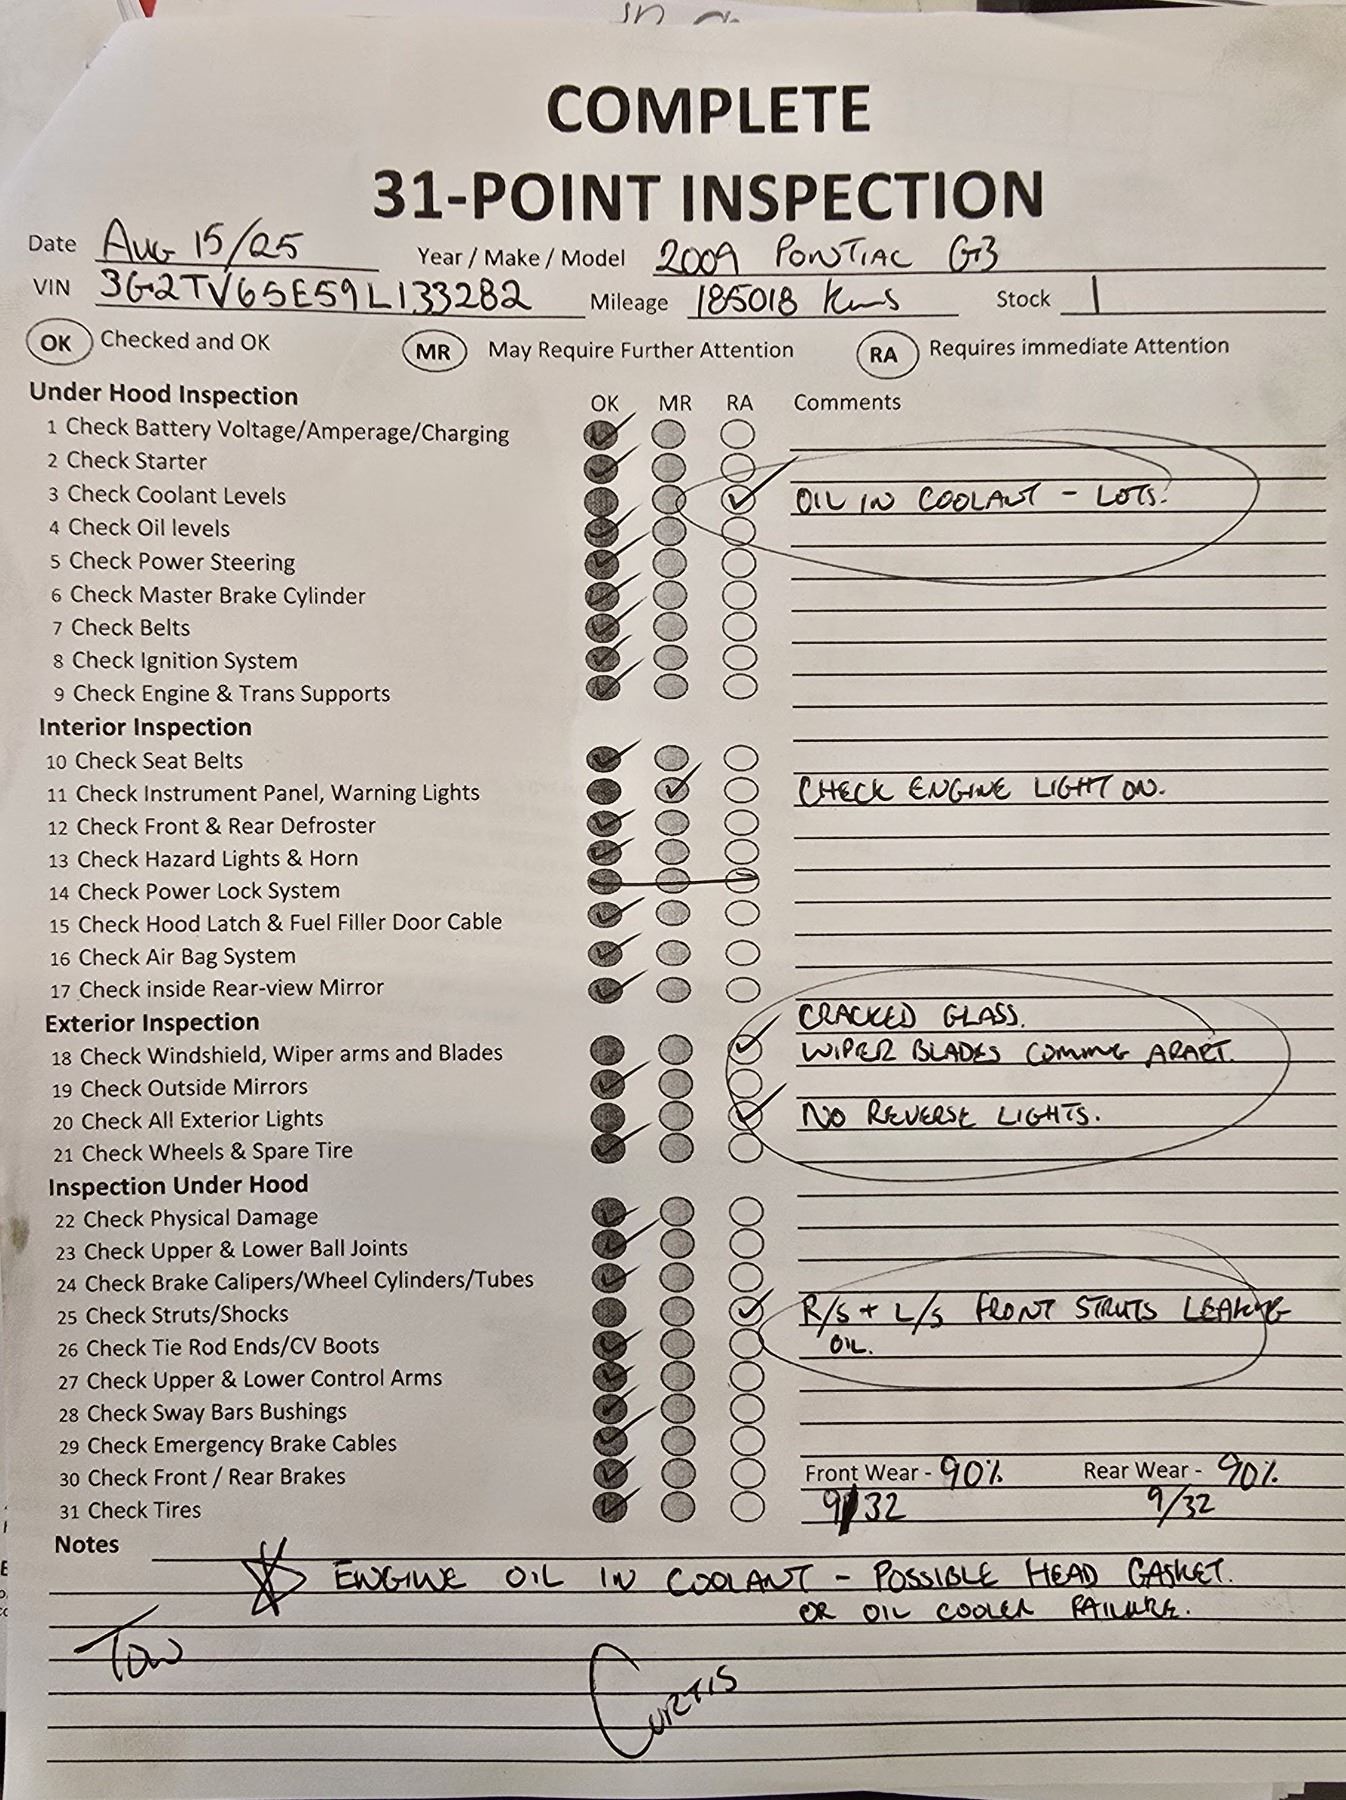 COMPLETE
31-POINT INSPECTION
Date Aug 15/25 Year / Make / Model 2009 PONTIAC G3
VIN 3G2TV65E59L133282 Mileage 185018 Kms Stock
OK Checked and OK MR May Require Further Attention RA Requires immediate Attention
Under Hood Inspection OK MR RA Comments
1 Check Battery Voltage/Amperage/Charging
2 Check Starter
3 Check Coolant Levels OIL IN COOLANT - LOTS.
4 Check Oil levels
5 Check Power Steering
6 Check Master Brake Cylinder
7 Check Belts
8 Check Ignition System
9 Check Engine & Trans Supports
Interior Inspection
10 Check Seat Belts
11 Check Instrument Panel, Warning Lights CHECK ENGINE LIGHT ON.
12 Check Front & Rear Defroster
13 Check Hazard Lights & Horn
14 Check Power Lock System
15 Check Hood Latch & Fuel Filler Door Cable
16 Check Air Bag System
17 Check inside Rear-view Mirror
CRACKED GLASS.
Exterior Inspection
18 Check Windshield, Wiper arms and Blades WIPER BLADES COMING APART.
19 Check Outside Mirrors
20 Check All Exterior Lights NO REVERSE LIGHTS.
21 Check Wheels & Spare Tire
Inspection Under Hood
22 Check Physical Damage
23 Check Upper & Lower Ball Joints
24 Check Brake Calipers/Wheel Cylinders/Tubes
25 Check Struts/Shocks R/S + L/S FRONT STRUTS LEAKING
26 Check Tie Rod Ends/CV Boots OIL.
27 Check Upper & Lower Control Arms
28 Check Sway Bars Bushings
29 Check Emergency Brake Cables
30 Check Front / Rear Brakes Front Wear - 90% Rear Wear - 90%
31 Check Tires 9/32 9/32
Notes
ENGINE OIL IN COOLANT - POSSIBLE HEAD GASKET.
OR OIL COOLER FAILURE.
Tow
CURTIS